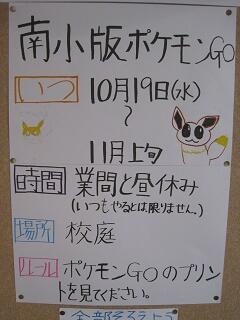 南小版ポケモンGO
いつ 10月19日(水)
～
11月上旬
時間 業間と昼休み
(いつもやるとは限りません。)
場所 校庭
ルール ポケモンGOのプリン
トを見てください。
全部そろえよう